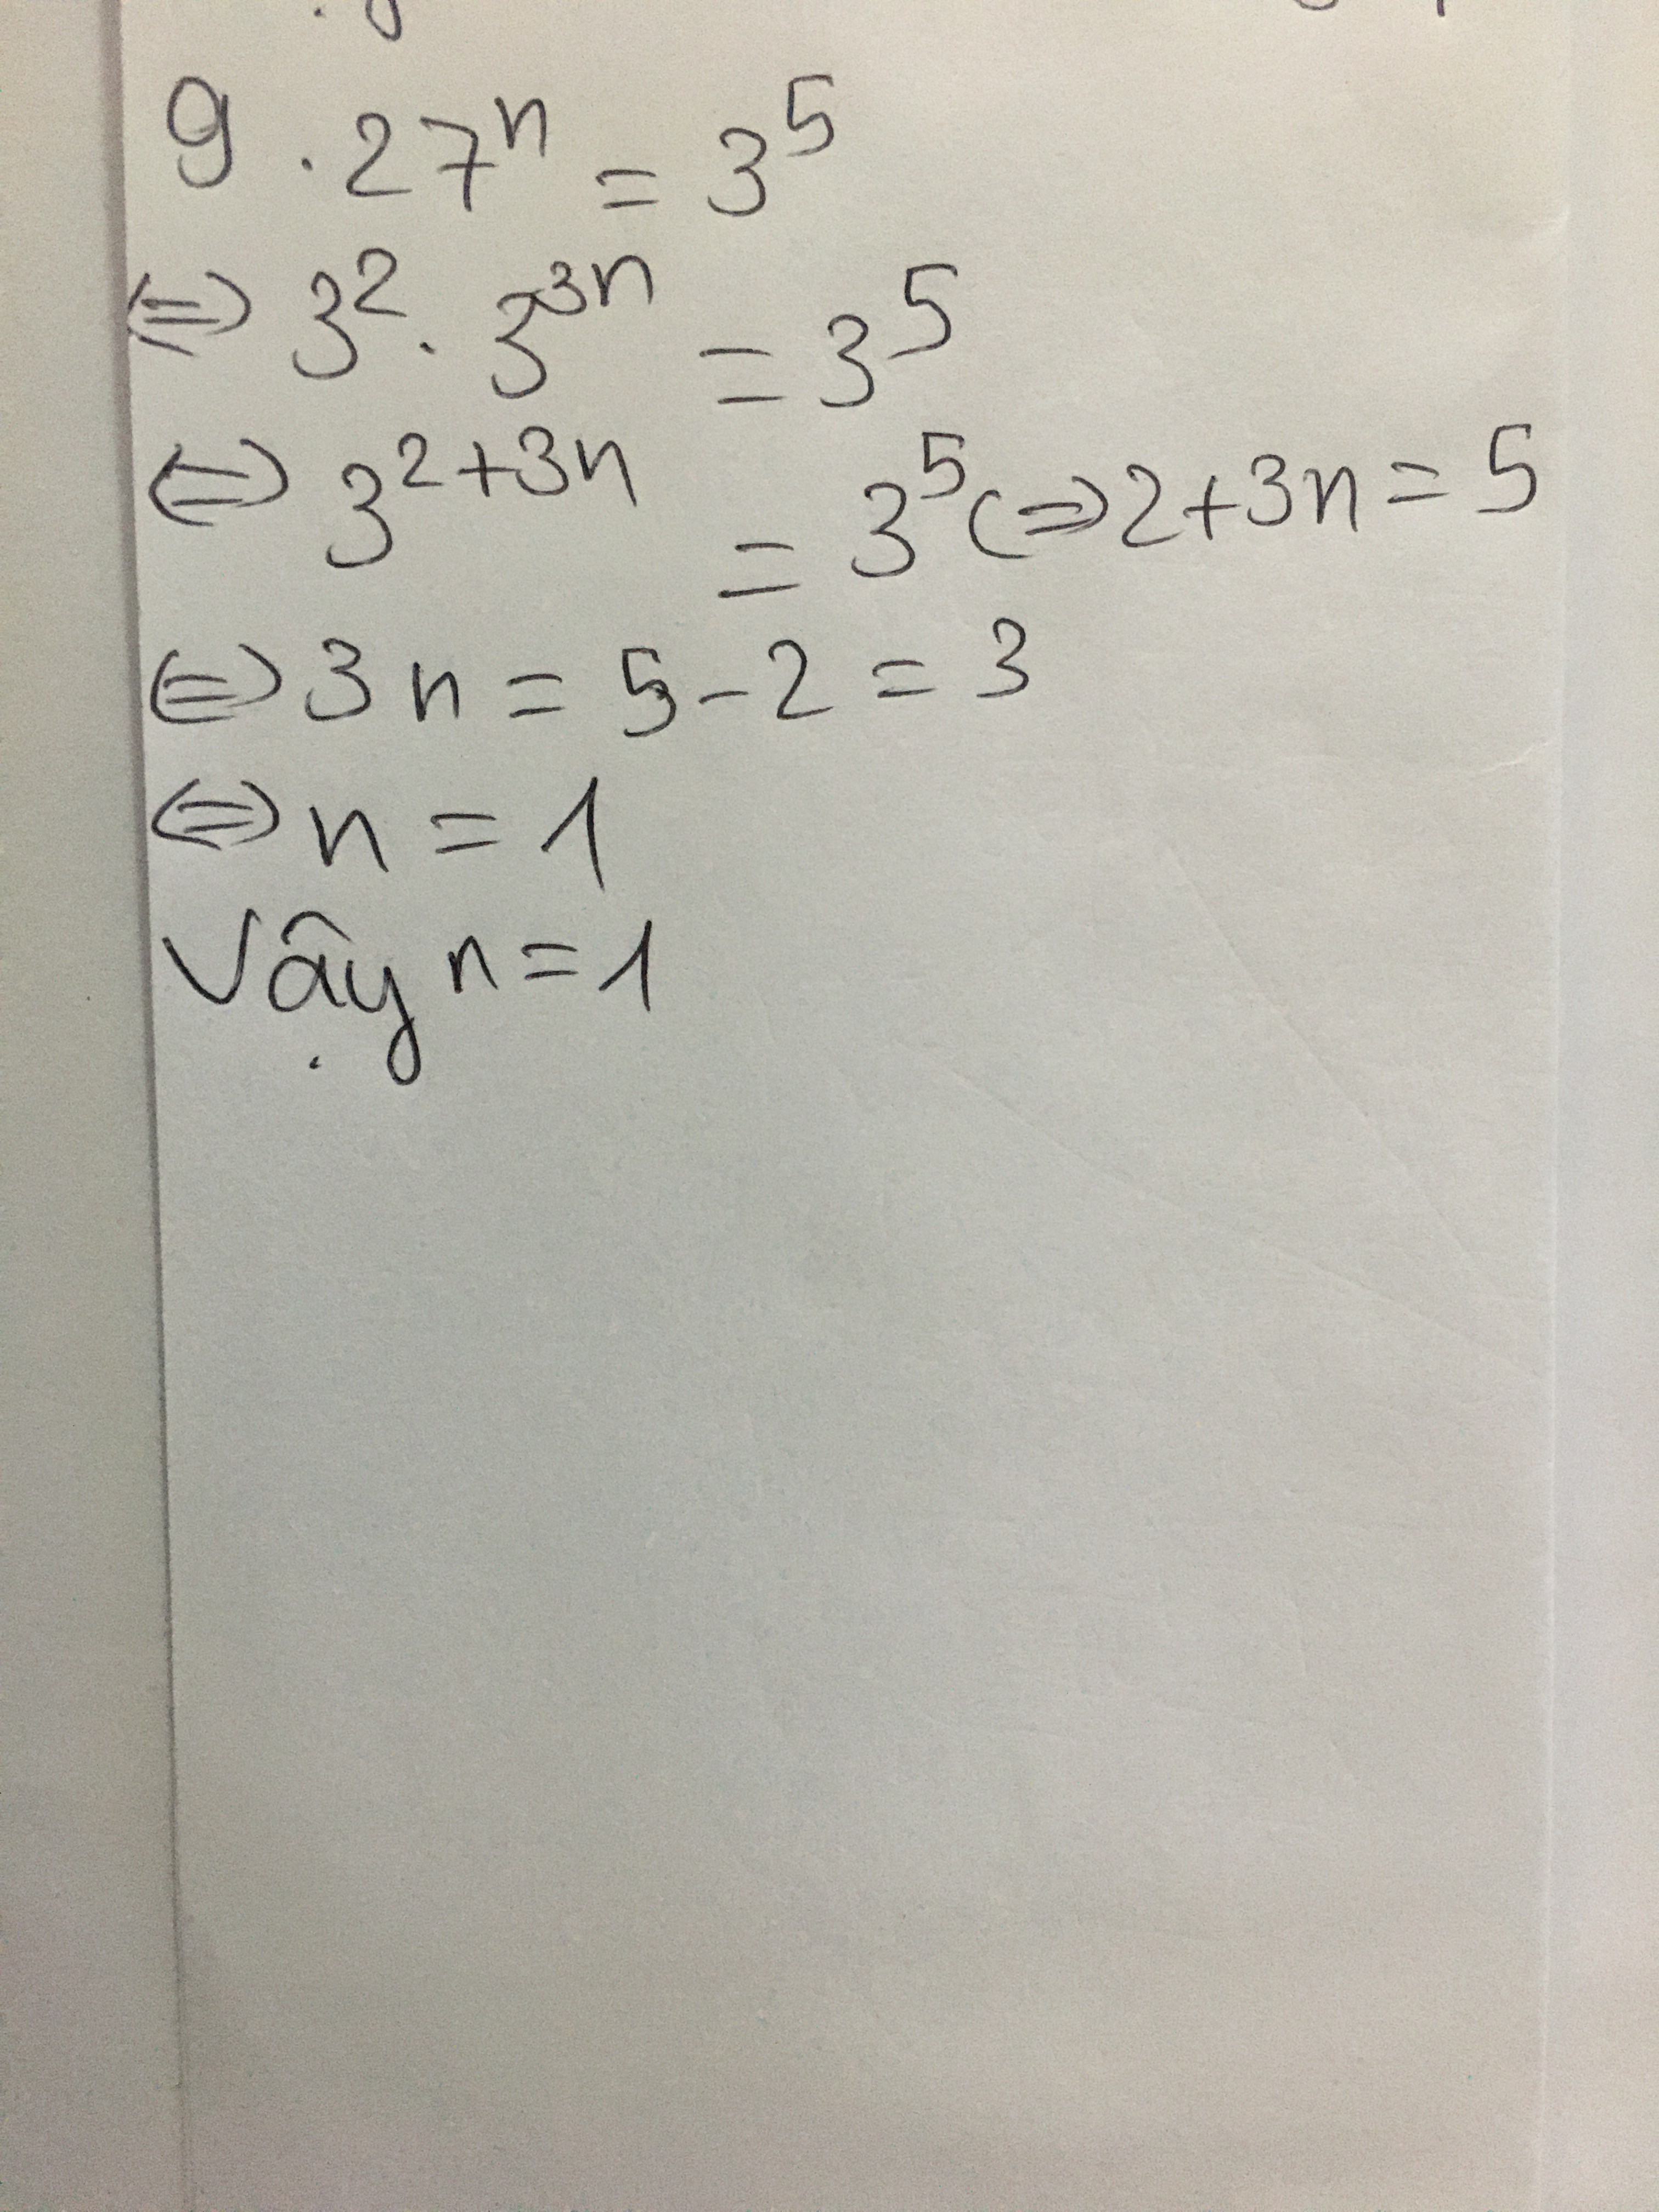 9 . 27^n = 3^5
⇔ 3^2 . 3^3n = 3^5
⇔ 3^2+3n = 3^5 ⇔ 2+3n = 5
⇔ 3n = 5 - 2 = 3
⇔ n = 1
Vậy n = 1